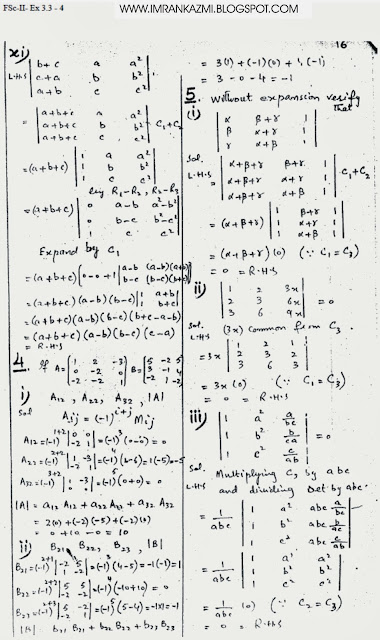 FSc-II- Ex 3.3 - 4
WWW.IMRANKAZMI.BLOGSPOT.COM
xi)
L.H.S
| b+c a a² |
| c+a b b² |
| a+b c c² |
= | a+b+c a a² |
| a+b+c b b² | C₁+C₂
| a+b+c c c² |
=(a+b+c) | 1 a a² |
| 1 b b² |
| 1 c c² |
by R₁-R₂, R₂-R₃
=(a+b+c) | 0 a-b a²-b² |
| 0 b-c b²-c² |
| 1 c c² |
Expand by C₁
=(a+b+c){0-0+1 | a-b (a-b)(a+b) |
| b-c (b-c)(b+c) |
=(a+b+c)(a-b)(b-c) | 1 a+b |
| 1 b+c |
=(a+b+c)(a-b)(b-c)(b+c-a-b)
=(a+b+c)(a-b)(b-c)(c-a)
= R.H.S
4. If A= [ 1 2 -3 ] B= [ 5 -2 5 ]
[ 0 -2 0 ] [ 3 -1 4 ]
[ -2 -2 1 ] [ -2 1 -2 ]
i) A₁₂, A₂₂, A₃₂, |A|
Sol Aij = (-1)^i+j Mij
A₁₂=(-1)^1+2 | 0 0 | =(-1)³(0-0)=0
| -2 1 |
A₂₂=(-1)^2+2 | 1 -3 | =(-1)⁴(1-6)=1(-5)=-5
| -2 1 |
A₃₂=(-1)^3+2 | 1 -3 | =(-1)⁵(0+0)=0
| 0 0 |
|A| = a₁₂ A₁₂ + a₂₂ A₂₂ + a₃₂ A₃₂
= 2(0)+(-2)(-5)+(-2)(0)
= 0+10-0=10
ii) B₂₁, B₂₂, B₂₃, |B|
B₂₁=(-1)^2+1 | -2 5 | =(-1)³(4-5)=-1(-1)=1
| 1 -2 |
B₂₂=(-1)^2+2 | 5 5 | =(-1)⁴(-10+10)=0
| -2 -2 |
B₂₃=(-1)^2+3 | 5 -2 | =(-1)⁵(5-4)=-1x1=-1
| -2 1 |
|B| = b₂₁ B₂₁ + b₂₂ B₂₂ + b₂₃ B₂₃
16
= 3(1)+(-1)(0)+4(-1)
= 3-0-4=-1
5. Without expansion verify that
(i) | α β+γ 1 |
| β γ+α 1 |
| γ α+β 1 |
Sol.
L.H.S
= | α+β+γ β+γ 1 |
| α+β+γ γ+α 1 | C₁+C₂
| α+β+γ α+β 1 |
=(α+β+γ) | 1 β+γ 1 |
| 1 γ+α 1 |
| 1 α+β 1 |
=(α+β+γ)(0) (∵ C₁=C₃)
= 0 = R.H.S
ii) | 1 2 3x |
| 2 3 6x | = 0
| 3 6 9x |
Sol. (3x) common from C₃.
L.H.S
=3x | 1 2 1 |
| 2 3 2 |
| 3 6 3 |
= 3x (0) (∵ C₁=C₃)
= 0 = R.H.S
iii) | 1 a² a/bc |
| 1 b² b/ca | = 0
| 1 c² c/ab |
Sol. Multiplying C₃ by abc
L.H.S and dividing Det by abc.
= 1/abc | 1 a² abc a/bc |
| 1 b² abc b/ac |
| 1 c² abc c/ab |
= 1/abc | 1 a² a² |
| 1 b² b² |
| 1 c² c² |
= 1/abc (0) (∵ C₂=C₃)
= 0 = R.H.S